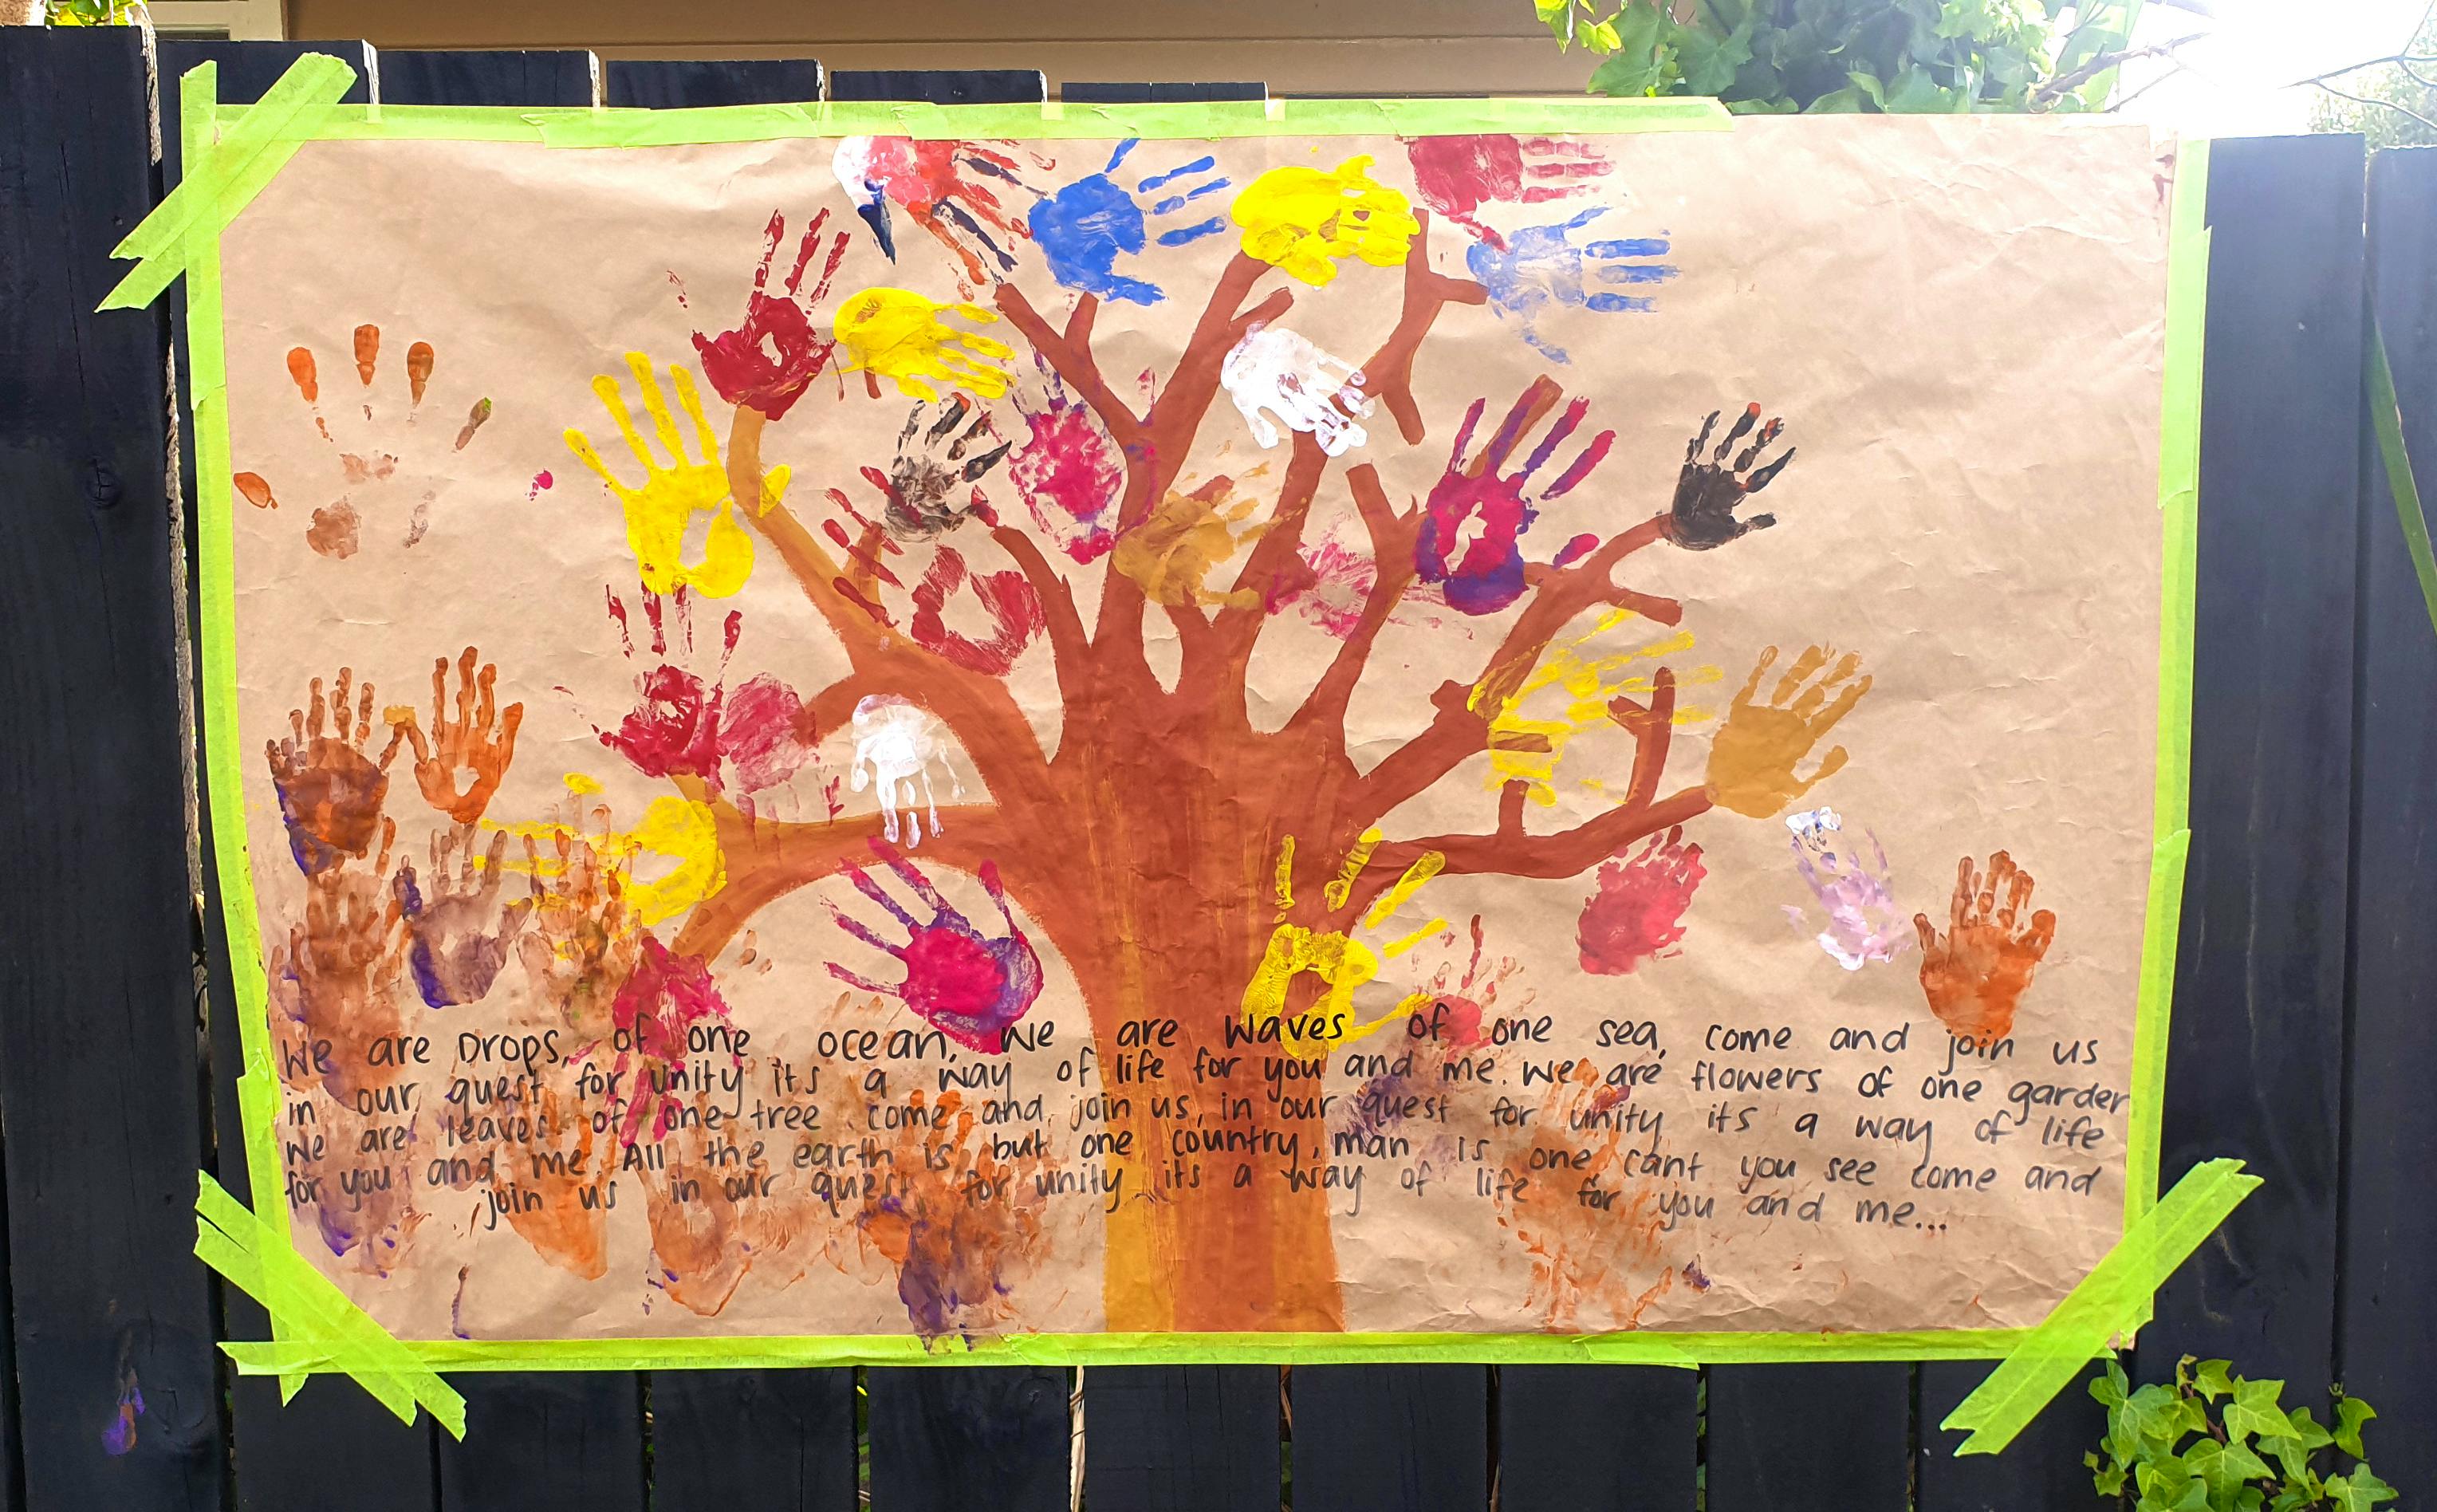 We are Drops, of one ocean, we are waves of one sea, come and join us
in our quest for unity its a way of life for you and me. We are flowers of one garden
we are leaves of one tree come and join us, in our quest for unity its a way of life
for you and me. All the earth is but one country, man is one cant you see come and
join us in our quest for unity its a way of life for you and me...